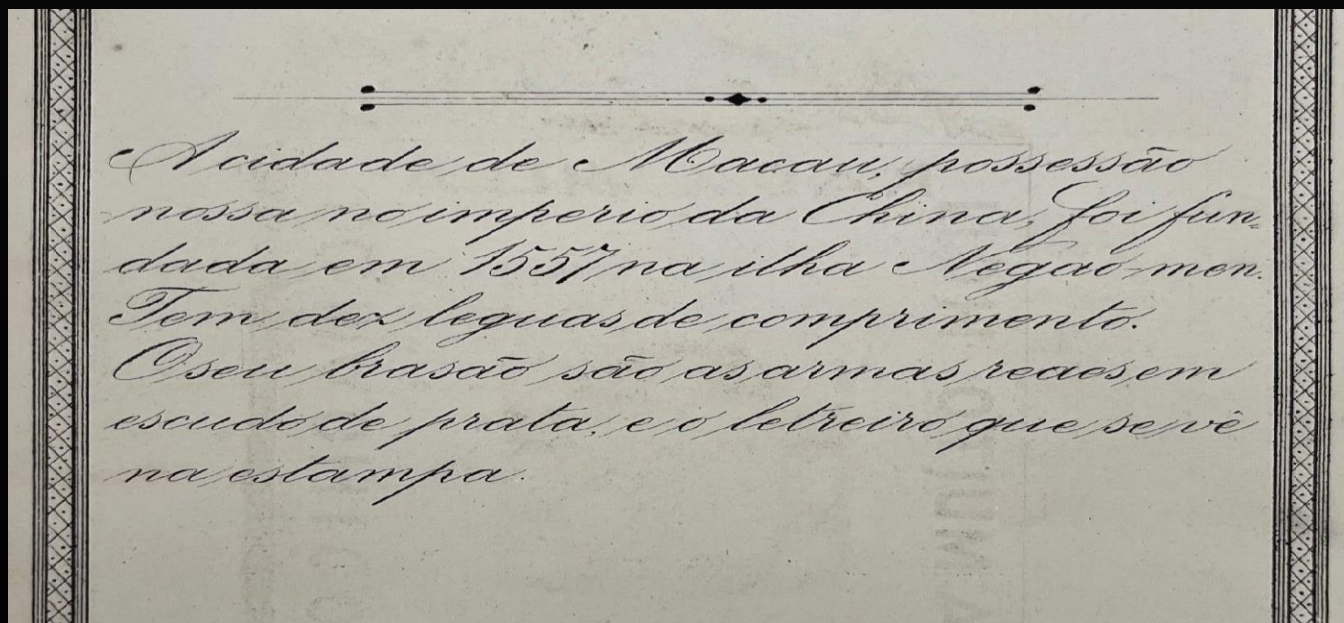 A cidade de Macau, possessão
nossa no imperio da China, foi fun=
dada em 1557 na ilha Negao-men.
Tem dez leguas de comprimento.
O seu brasão são as armas reaes em
escudo de prata, e o letreiro que se vê
na estampa.